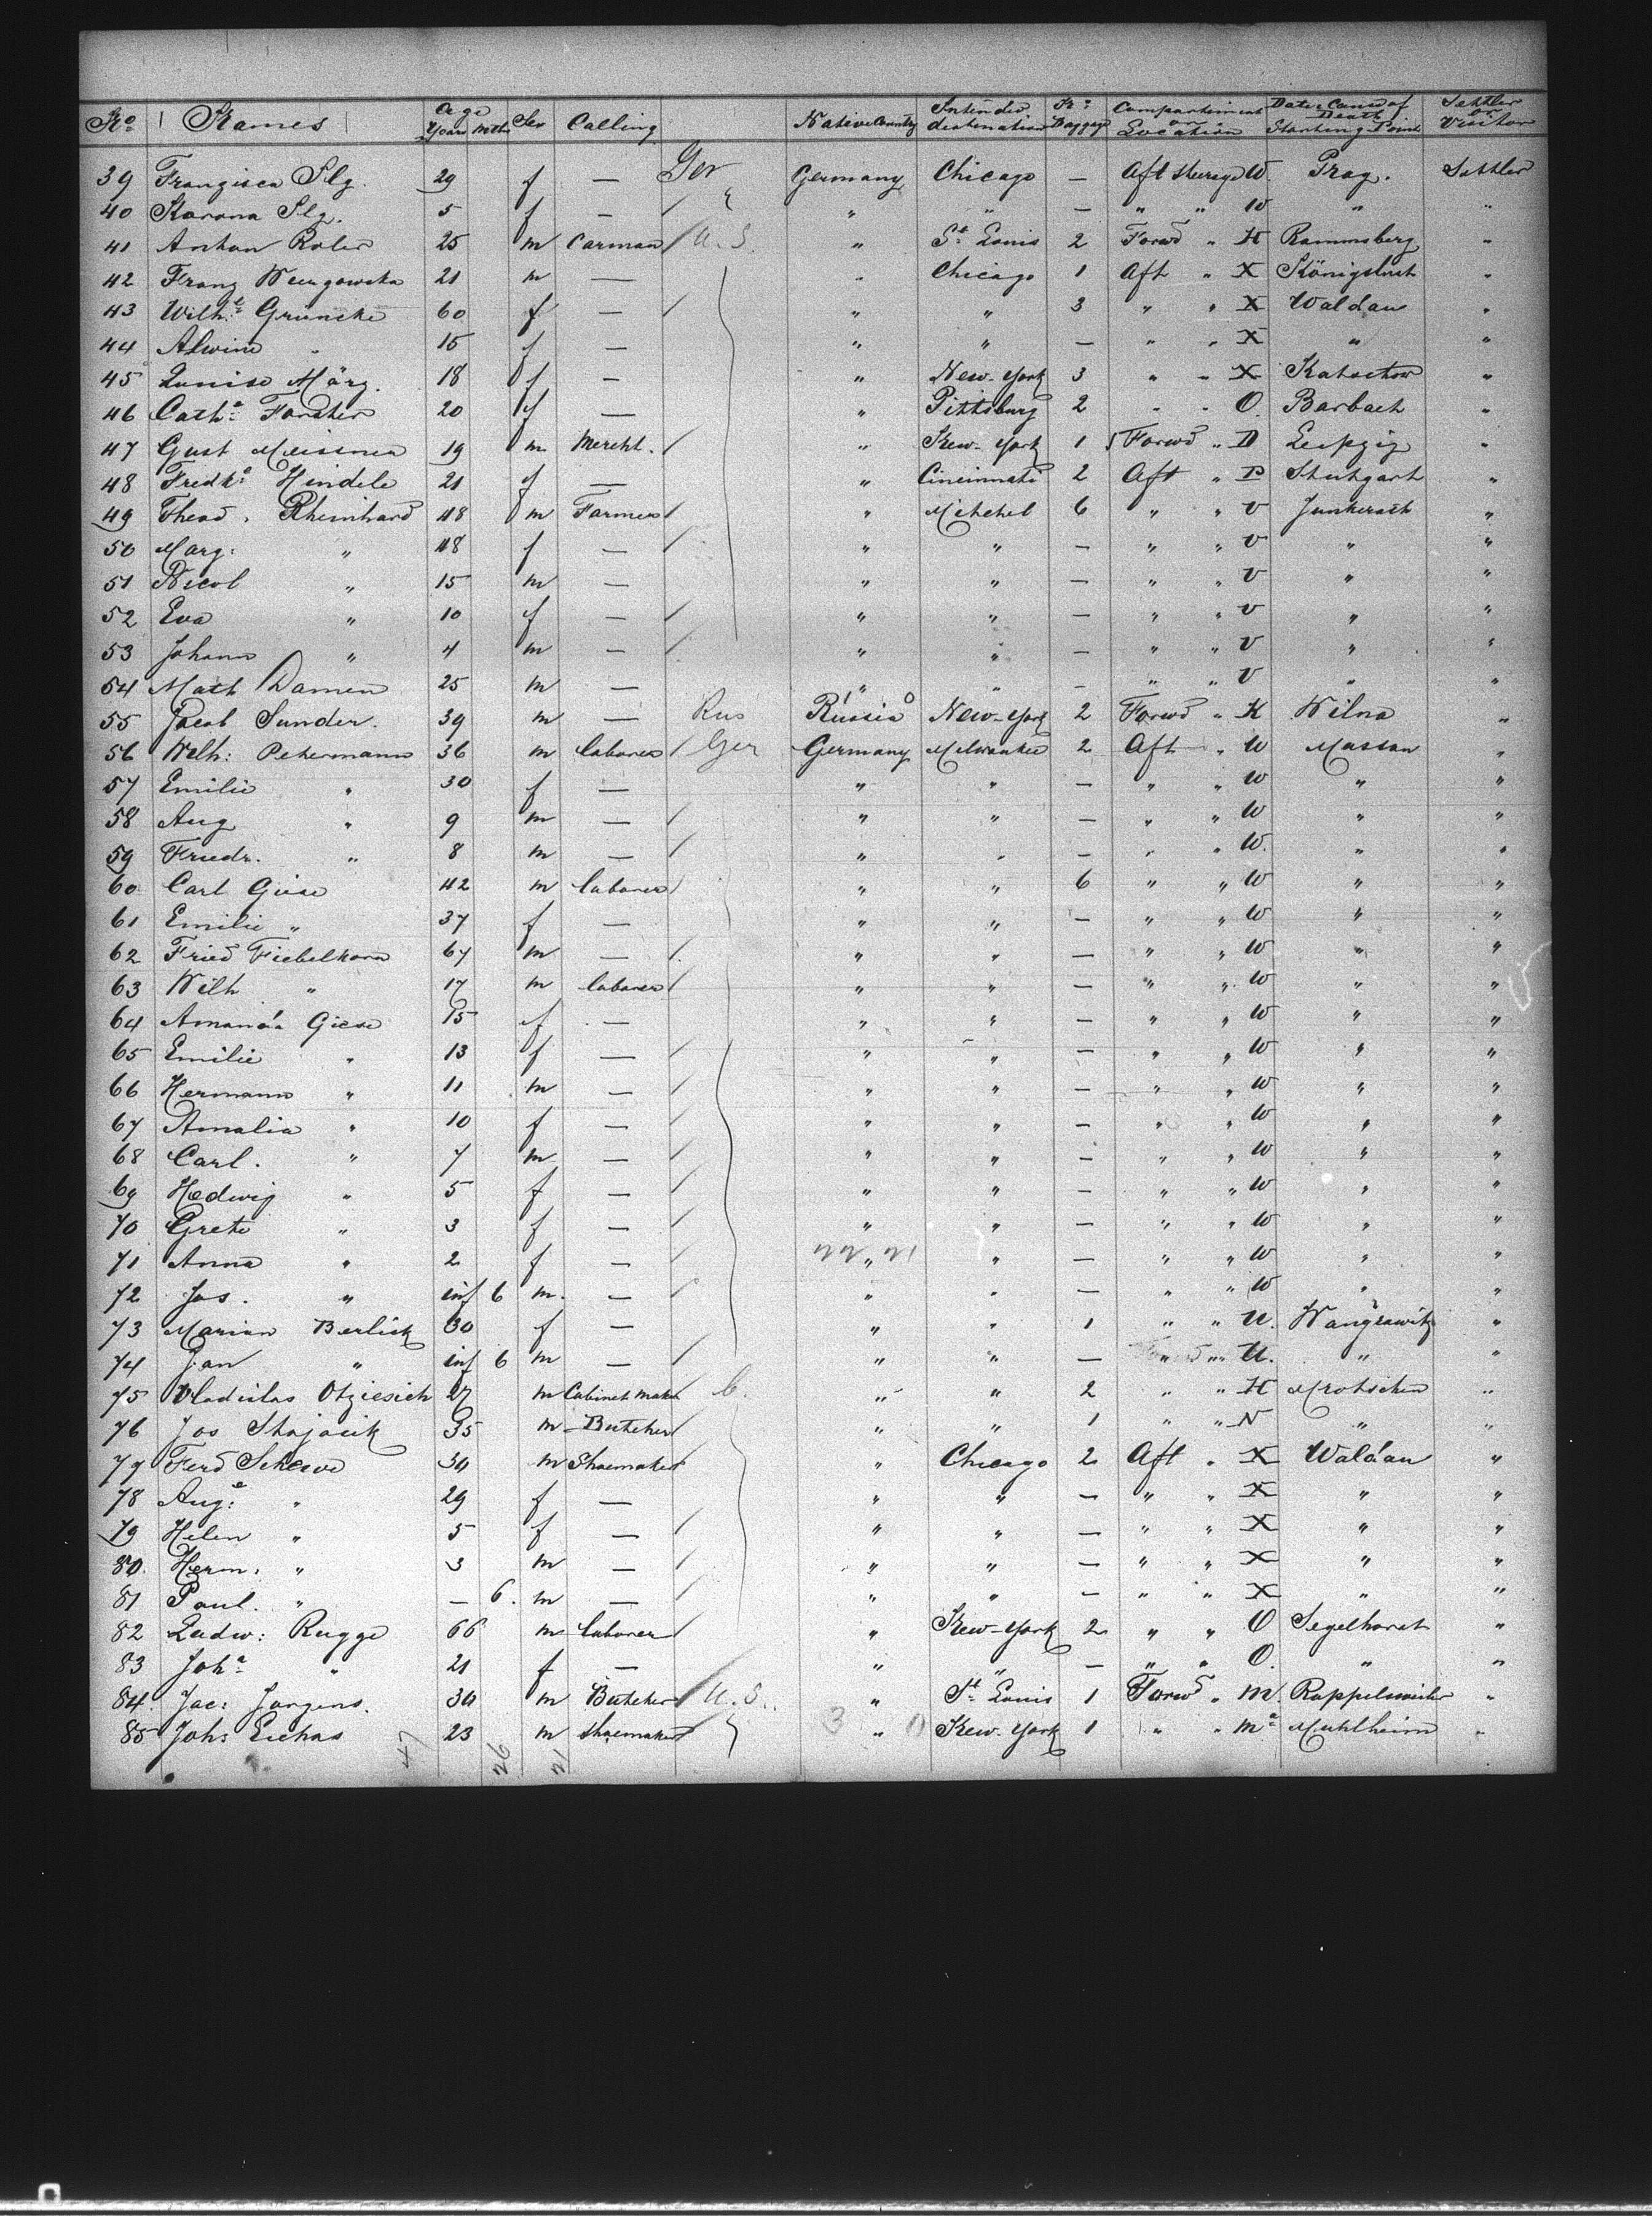 No Names Age Years Mths Sex Calling Native Country Intended destination No Baggage Compartment or Location Date & Cause of Death Starting Point Settler or Visitor
39 Franzisca Ilg. 29 f — Ger Germany Chicago — Aft Steerage W. Prag. Settler
40 Ilg. 5 f — " " — " " W " "
41 Anton Roler 25 m Carman U.S. " St Louis 2 Forwd " H Rammsberg "
42 Franz 21 m — " Chicago 1 Aft " X "
43 Wilhe Gruncke 60 f — " " 3 " " X Waldau "
44 Alwine " 15 f — " " — " " X " "
45 Louise März. 18 f — " New-York 3 " " X "
46 Cathe Forster 20 f — " Pittsburg 2 " " O. Barbach "
47 Gust Meissner 19 m Mercht. " New-York 1 Forwd " D Leipzig "
48 Fredke Hindele 21 f — " Cincinnati 2 Aft " P Stuttgart "
49 Theod. Rheinhard 48 m Farmer " Mitchel 6 " " V Junkerath "
50 Marg: " 48 f — " " — " " V " "
51 Nicol " 15 m — " " — " " V " "
52 Eva " 10 f — " " — " " V " "
53 Johann " 4 m — " " — " " V " "
54 Math Damen 25 m — " " — " " V " "
55 Jacob Sunder. 39 m — Rus Russia New-York 2 Forwd " K Wilna "
56 Wilh: Petermann 36 m laborer Ger Germany Milwaukee 2 Aft " W Massan "
57 Emilie " 30 f — " " — " " W " "
58 Aug " 9 m — " " — " " W " "
59 Friedr. " 8 m — " " — " " W. " "
60 Carl Giese 42 m laborer " " 6 " " W " "
61 Emilie " 37 f — " " — " " W " "
62 Fried Fiebelkorn 67 m — " " — " " W " "
63 Wilh " 17 m laborer " " — " " W " "
64 Amanda Giese 15 f — " " — " " W " "
65 Emilie " 13 f — " " — " " W " "
66 Hermann " 11 m — " " — " " W " "
67 Amalia " 10 f — " " — " " W " "
68 Carl. " 7 m — " " — " " W " "
69 Hedwig " 5 f — " " — " " W " "
70 Grete " 3 f — " " — " " W " "
71 Anna " 2 f — " " — " " W " "
72 Jos. " inf 6 m. — " " — " " W " "
73 Marian Berlick 30 f — " " 1 " " U. Wangrowitz "
74 Jan " inf 6 m — " " — " " U. " "
75 Vladislas Otziesich 27 m Cabinet maker " " 2 " " H Mrotschen "
76 Jos Stajacik 35 m Butcher " " 1 " " N " "
77 Ferd Schewe 34 m Shoemaker " Chicago 2 Aft " X Waldau "
78 Auge: " 29 f — " " — " " X " "
79 Helen " 5 f — " " — " " X " "
80. Herm: " 3 m — " " — " " X " "
81 Paul. " — 6. m — " " — " " X " "
82 Ludw: Rugge 66 m laborer " New-York 2 " " O Segelhorst "
83 Johe " 21 f — " " — " " O. " "
84. Jac: Jorgens. 34 m Butcher U.S. " St Louis 1 Forwd " M. "
85 Joh: Eichas 23 m Shoemaker " New-York 1 " " M Muhlheim "
47 26 21